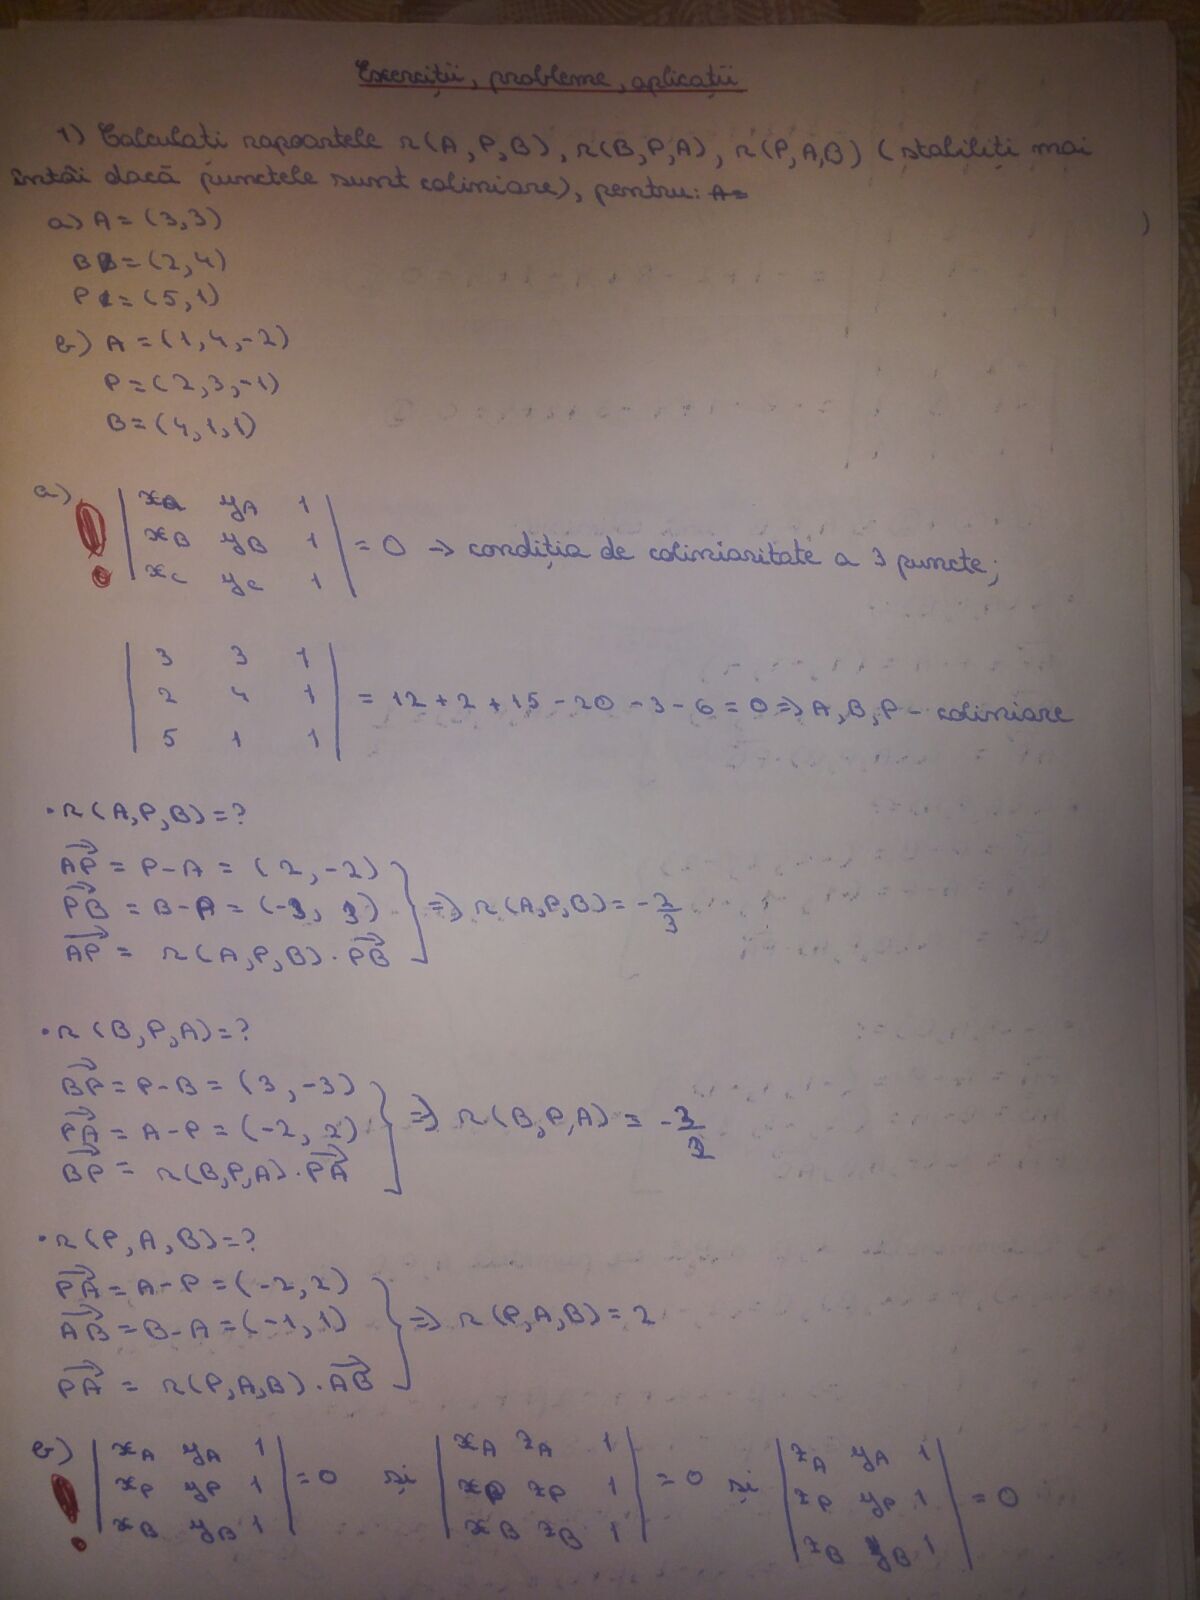 Exerciții, probleme, aplicații
1) Calculați rapoartele r(A,P,B), r(B,P,A), r(P,A,B) (stabiliți mai
întâi dacă punctele sunt coliniare), pentru: A=
a) A = (3,3)
B = (2,4)
P = (5,1)
b) A = (1,4,-2)
P = (2,3,-1)
B = (4,1,1)
a) ! | xA yA 1 |
| xB yB 1 | = 0 → condiția de coliniaritate a 3 puncte;
| xC yC 1 |
| 3 3 1 |
| 2 4 1 | = 12 + 2 + 15 - 20 - 3 - 6 = 0 => A, B, P - coliniare
| 5 1 1 |
• r(A,P,B) = ?
AP = P - A = (2, -2)
PB = B - P = (-3, 3) } => r(A,P,B) = -2/3
AP = r(A,P,B) · PB
• r(B,P,A) = ?
BP = P - B = (3, -3)
PA = A - P = (-2, 2) } => r(B,P,A) = -3/2
BP = r(B,P,A) · PA
• r(P,A,B) = ?
PA = A - P = (-2, 2)
AB = B - A = (-1, 1) } => r(P,A,B) = 2
PA = r(P,A,B) · AB
b) ! | xA yA 1 | | xA zA 1 | | zA yA 1 |
| xP yP 1 | = 0 și | xP zP 1 | = 0 și | zP yP 1 | = 0
| xB yB 1 | | xB zB 1 | | zB yB 1 |